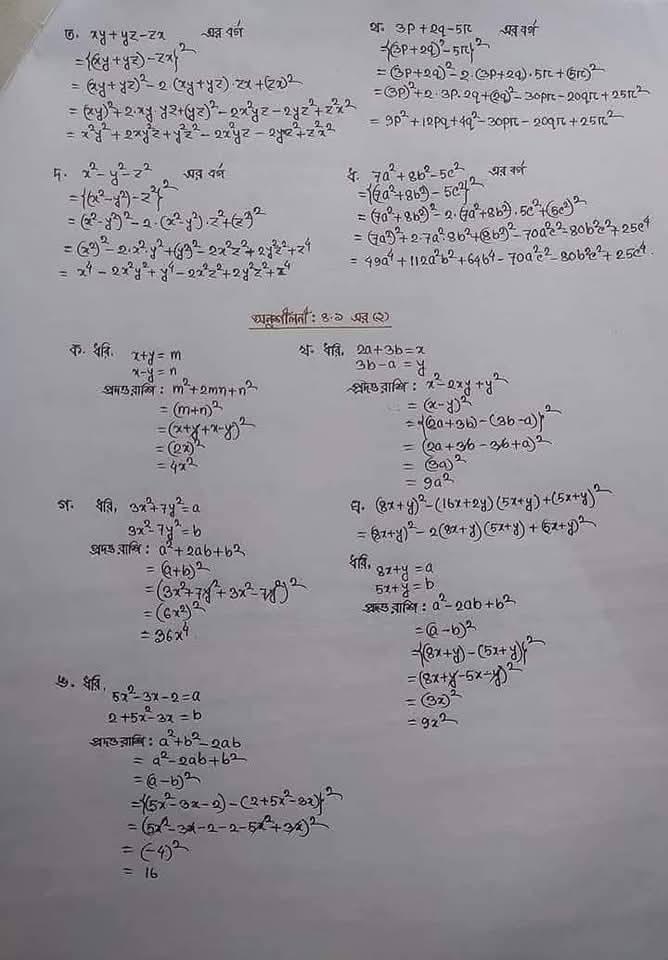 ত. xy+yz-zx এর বর্গ
={(xy+yz)-zx}²
= (xy+yz)²-2 (xy+yz)·zx+(zx)²
= (xy)²+2·xy·yz+(yz)²-2x²yz-2yz²x+z²x²
= x²y²+2xy²z+y²z²-2x²yz-2yxz²+z²x²
থ. 3p+2q-5r এর বর্গ
={(3p+2q)-5r}²
= (3p+2q)²-2·(3p+2q)·5r+(5r)²
=(3p)²+2·3p·2q+(2q)²-30pr-20qr+25r²
= 9p²+12pq+4q²-30pr-20qr+25r²
দ. x²-y²-z² এর বর্গ
={(x²-y²)-z²}²
=(x²-y²)²-2·(x²-y²)·z²+(z²)²
=(x²)²-2·x²·y²+(y²)²-2x²z²+2y²z²+z⁴
= x⁴-2x²y²+y⁴-2x²z²+2y²z²+z⁴
ধ. 7a²+8b²-5c² এর বর্গ
={(7a²+8b²)-5c²}²
=(7a²+8b²)²-2·(7a²+8b²)·5c²+(5c²)²
=(7a²)²+2·7a²·8b²+(8b²)²-70a²c²-80b²c²+25c⁴
= 49a⁴+112a²b²+64b⁴-70a²c²-80b²c²+25c⁴
অনুশীলনী: ৪.১ এর (২)
ক. ধরি, x+y=m
x-y=n
প্রদত্ত রাশি: m²+2mn+n²
=(m+n)²
=(x+y+x-y)²
=(2x)²
=4x²
খ. ধরি, 2a+3b=x
3b-a=y
প্রদত্ত রাশি: x²-2xy+y²
= (x-y)²
={(2a+3b)-(3b-a)}²
= (2a+3b-3b+a)²
= (3a)²
= 9a²
গ. ধরি, 3x²+7y²=a
3x²-7y²=b
প্রদত্ত রাশি: a²+2ab+b²
=(a+b)²
=(3x²+7y²+3x²-7y²)²
=(6x²)²
=36x⁴
ঘ. (8x+y)²-(16x+2y)(5x+y)+(5x+y)²
=(8x+y)²-2(8x+y)(5x+y)+(5x+y)²
ধরি, 8x+y=a
5x+y=b
প্রদত্ত রাশি: a²-2ab+b²
=(a-b)²
={(8x+y)-(5x+y)}²
=(8x+y-5x-y)²
=(3x)²
=9x²
ঙ. ধরি, 5x²-3x-2=a
2+5x²-3x=b
প্রদত্ত রাশি: a²+b²-2ab
= a²-2ab+b²
=(a-b)²
={(5x²-3x-2)-(2+5x²-3x)}²
=(5x²-3x-2-2-5x²+3x)²
= (-4)²
= 16